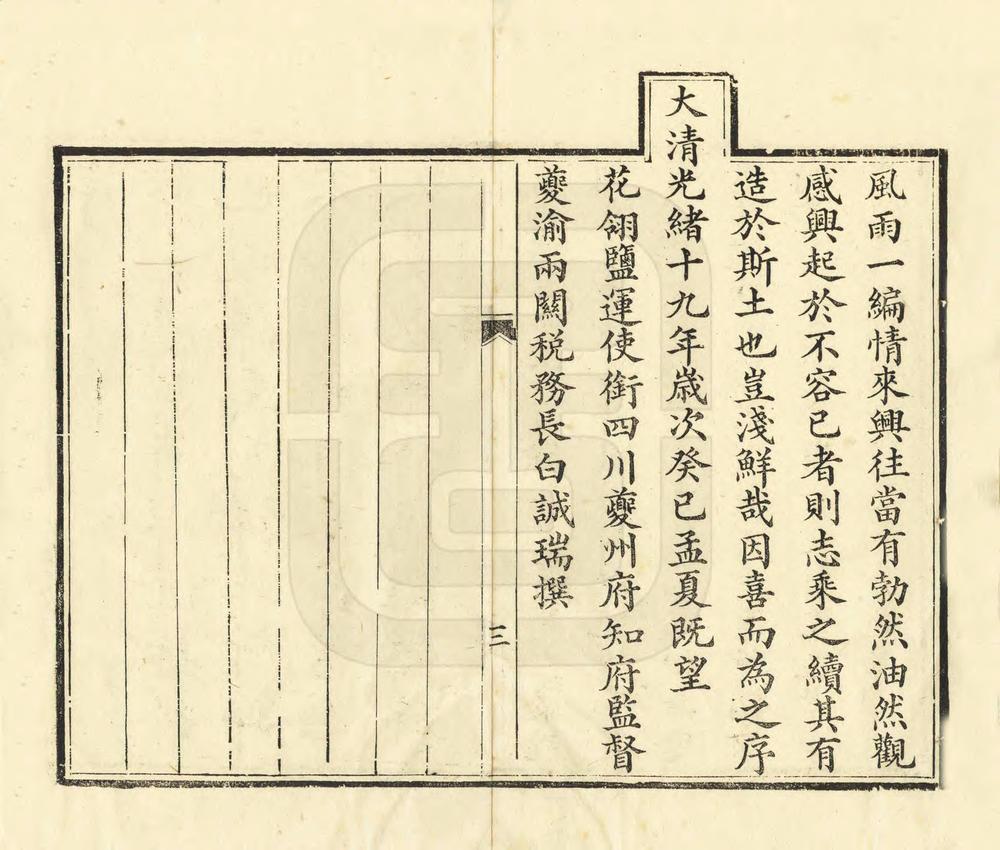 風雨一編情來興往當有勃然油然觀
感興起於不容已者則志乘之續其有
造於斯土也豈淺鮮哉因喜而為之序
大清光緒十九年歲次癸巳孟夏既望
花翎鹽運使銜四川夔州府知府監督
夔渝兩關稅務長白誠瑞撰
三